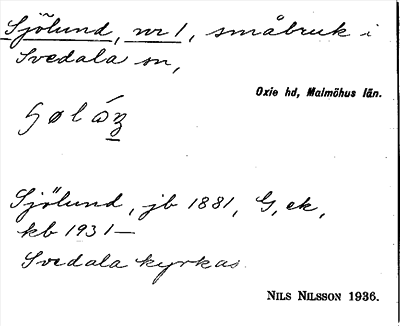 Sjölund, nr 1, småbruk i
Svedala sn,
Oxie hd, Malmöhus län.
Sjölund, jb 1881, G, ek,
kb 1931—
Svedala kyrkas.
NILS NILSSON 1936.